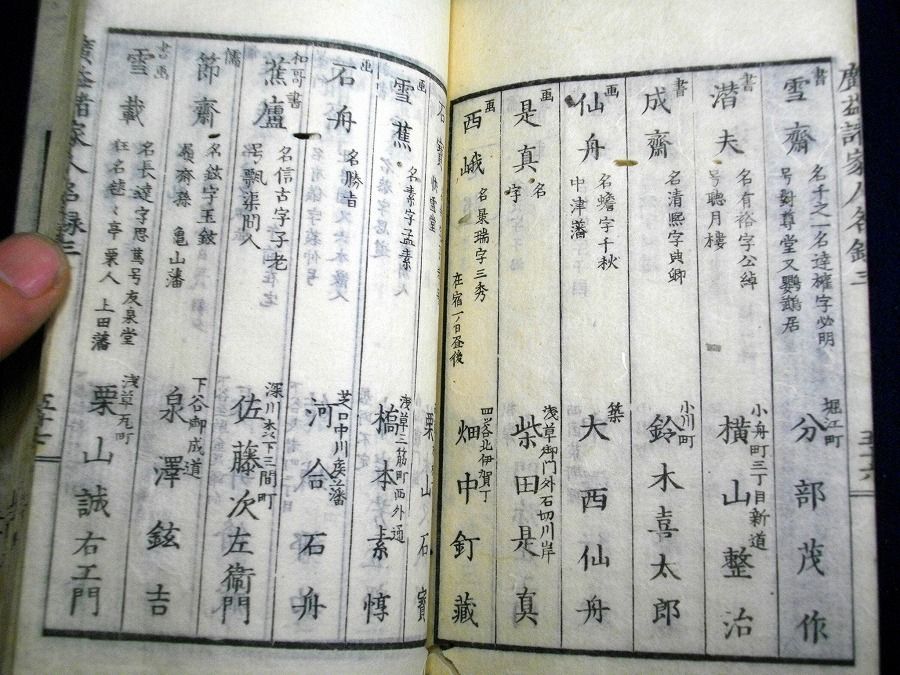 廣益諸家人名録三
書
雪齋
名千之一名達
字必明
号對尊堂又鸚鵡居
堀江町
分部茂作
書
潜夫
名有裕字公綽
号聴月樓
小舟町三丁目新道
横山整治
書
成齋
名清熙字典卿
小川町
鈴木喜太郎
画
仙舟
名蟾字千秋
中津藩
築
大西仙舟
画
是真
名
字
浅草御門外石切川岸
柴田是真
画
西峨
名景瑞字三秀
在宿一日昼後
四谷北伊賀丁
畑中釘藏
五十六
画
石
栗山石寳
画
雪蕉
名素字孟素
浅草三筋町西外通
橋本素惇
石舟
名勝音
芝口中川侯藩
河合石舟
和哥書
蕉廬
名信古字子老
号瓢渠間人
深川木下三間町
佐藤次左衞門
儒
節齋
名鉉字玉鉉
亀山藩
下谷御成道
泉澤鉉吉
書画
雪載
名長達字思萬号友泉堂
狂名
亭栗人
上田藩
浅草
町
栗山誠右エ門
廣益諸家人名録三
五十七